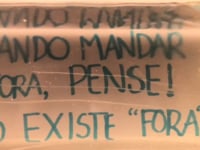 ANDO MANDAR
ORA, PENSE!
O EXISTE "FORA"